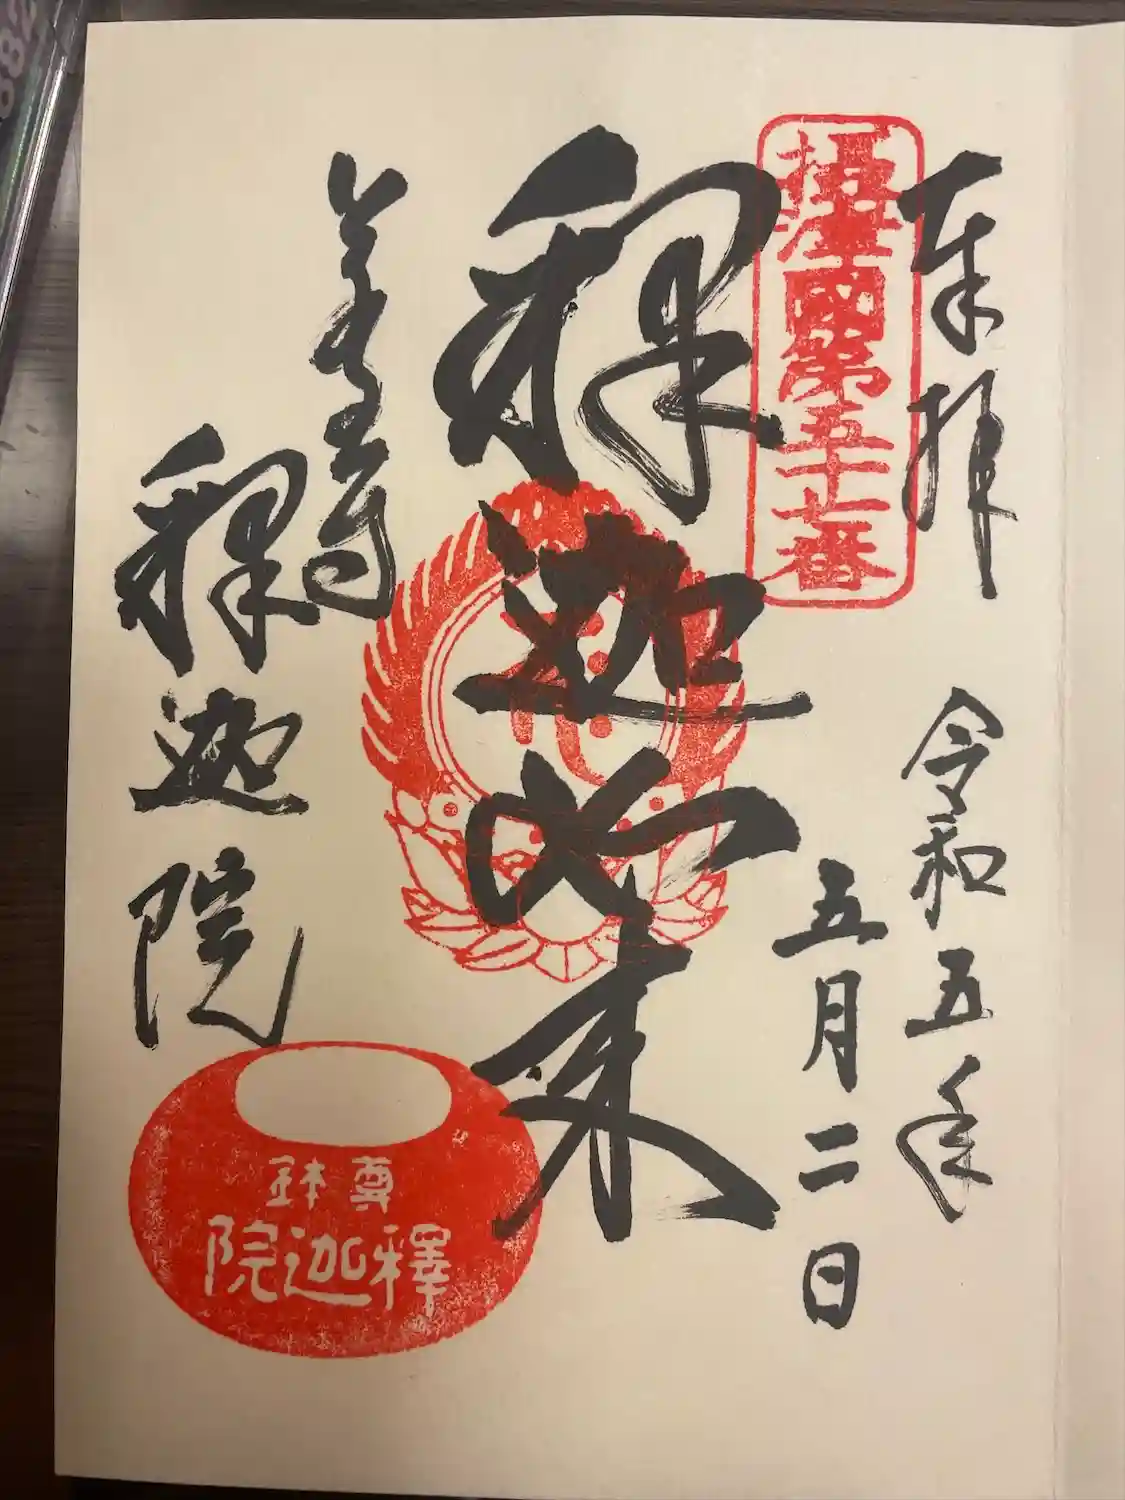 奉拝
令和五年
五月二日
摂津國第五十七番
釈迦如来
若王寺
釈迦院
尊鉢
釋迦院